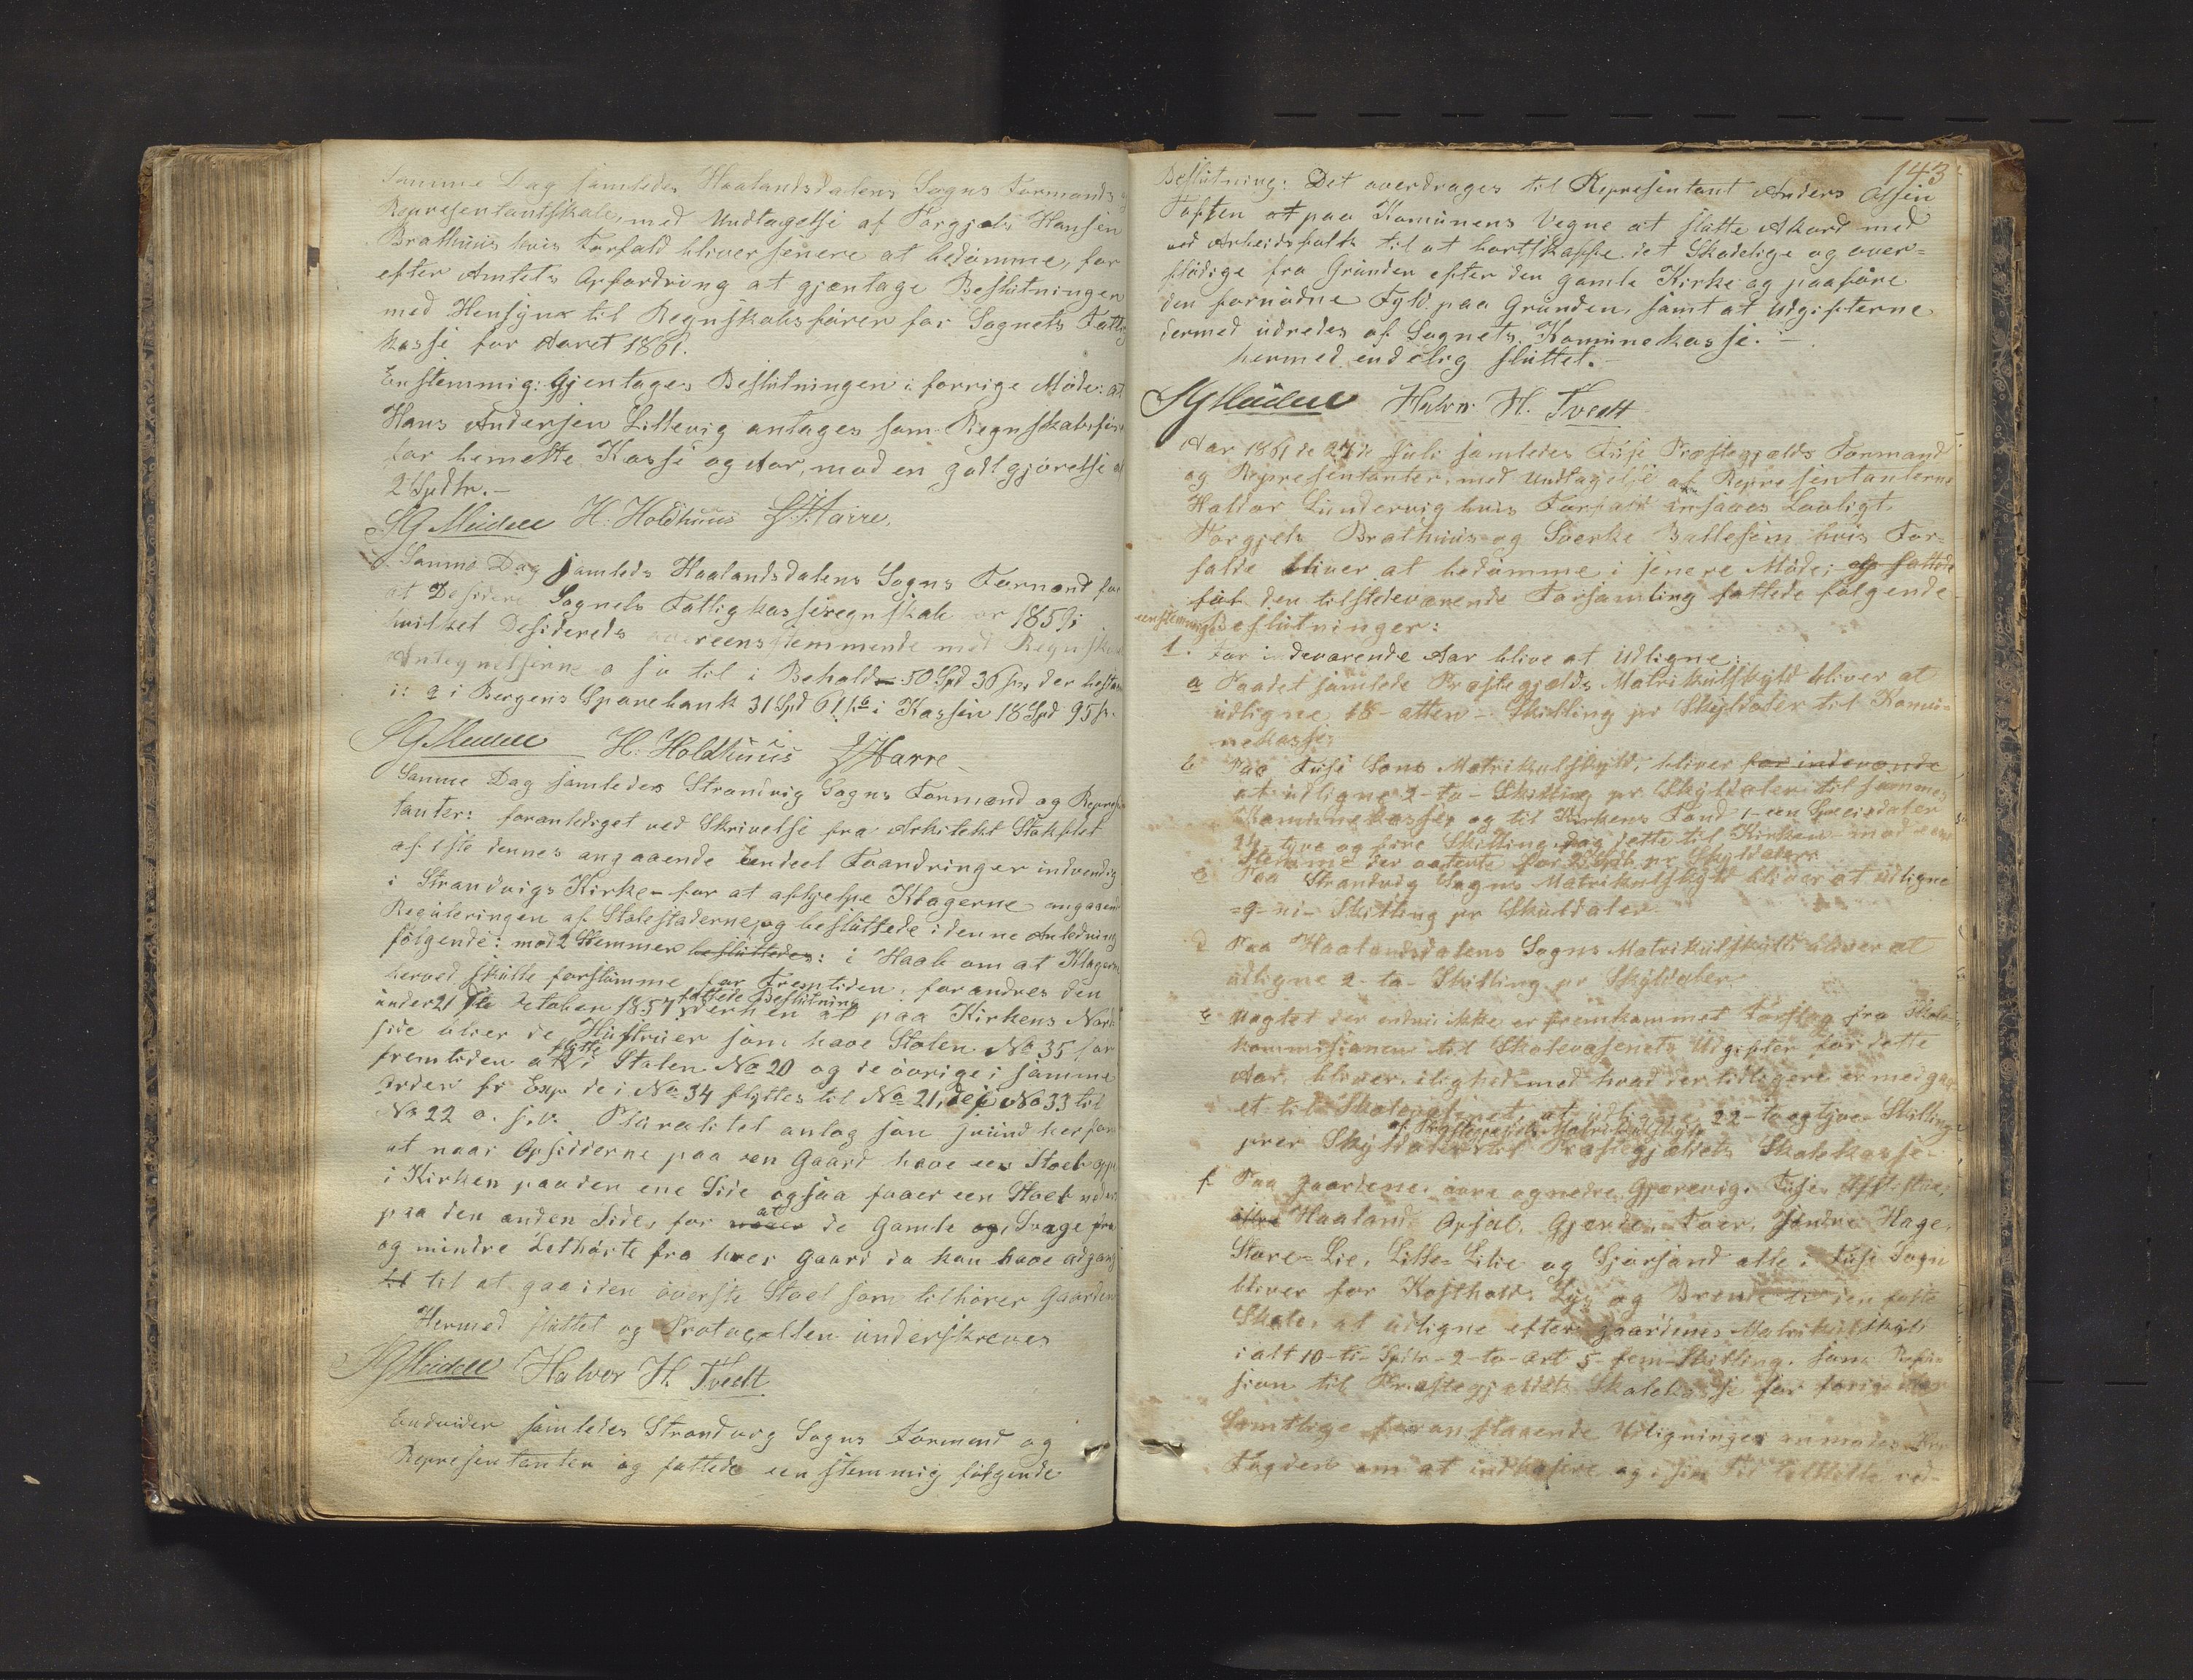 Samme Dag samledes Haalandsdalens Sogns Formands og
Representantskab, med Undtagelse af Torgjels Hansen
Brathuus hvis Forfald bliver senere at bedømme, for
efter Amtets Opfordring at gjentage Beslutningen
med Hensyn til Regnskabsfører for Sognets Fattig
kasse for Aaret 1861.
Enstemmig: Gjentages Beslutningen i forrige Møde: at
Hans Andersen Littevig antages som Regnskabsfører
for bemelte Kasse og Aar, mod en godtgjørelse af
2 Spdlr. -
H. Holdhuus
Samme Dag samleds Haalandsdalens Sogns Formænd for
at Desidere Sognets Fattigkasseregnskab for 1859;
hvilket Desidereds overeensstemmende med Regnskabs
Antegnelserne til i Behold = 50 Spd 36 s, der bestaar
i: a i Bergens Sparebank 31 Spd 61 s b i Kassen 18 Spd 95 s.
H. Holdhuus
Samme Dag samledes Strandvig Sogns Formænd og Represen
tanter: foranlediget ved Skrivelse fra Arkitekt
af 1ste dennes angaaende Eendeel Foandringer indvendig
i Strandvigs Kirke - for at afhjelpe Klagerne angaaende
Reguleringen af Stolestaderne, og besluttede i denne Anledning
følgende: mod 2 Stemmer besluttedes: i Haab om at Klagerne
herved skulle forstumme for Fremtiden, forandres den
under 21de October 1857 fattede Beslutning derhen at paa Kirkens Nord
side bliver de Hustruer som have Stolen No 35 for
fremtiden at flytte i Stolen No 20 og de øvrige i samme
Orden fr Exp. de i No 34 flyttes til No 21, de i No 33 til
No 22 o. s. v. Pluralitet antog som Grund herfor
at naar Opsidderne paa een Gaard have een Stoel øpp
i Kirken paa den ene Side ogsaa faaer een Stoel neder
paa den anden Side, for at de Gamle og Svage
og mindre Lethørte fra hver Gaard da kan have adgang
til at gaa i den øverste Stoel som tilhører Gaarden
Hermed sluttet og Protocollen underskreves
Halvor H. Tvedt
Endvider samledes Strandvig Sogns Formænd og
Representanter og fattede een stemmig følgende
143
Beslutning: Det overdrages til Representant Anders Olsen
Toften at paa Komunens Vegne at slutte Akord med
ved Arbeidsfolk til at bortskaffe det Skadelige og over=
flødige fra Grunden efter den gamle Kirke og paaføre
den fornødne Fyld paa Grunden, samt at Udgifterne
dermed udredes af Sognets Komunekasse. -
hermed endelig sluttet. -
Halvor H. Tvedt
Aar 1861 de 27de Juli samledes Fuse Præstegjælds Formænd
og Representanter, med Undtagelse af Representanterne
Haldor Lundervig hvis Forfald ansaaes Lovligt
Torgjels Brathuus og Sverke Baldesem hvis For=
falde bliver at bedømme i senere Møde; og fattede
før den tilstedeværende Forsamling fattede følgende
eenstemmig Beslutninger:
1. For indeværende Aar blive at Udligne:
a Paa det samlede Præstegjælds Matrikulskyld bliver at
udligne 18 - atten - Skilling pr Skylddaler til Komu=
nekasse;
b Paa Fuse Sons Matrikulskyld, bliver for indeværende
at udligne 2 - to - Skilling pr Skylddaler til sammes
Komunekasse, og til Kirkens Fond 1 - een Speciedaler
24 tyve og fire Skilling, dog dette til Kirken - mod een
Stemme der voterte for pr Skylddaler.
c Paa Strandvig Sogns Matrikulskyld bliver at udligne
= 9 - ni - Skilling pr Skulddaler.
d Paa Haalandsdalens Sogns Matrikulskuld bliver at
udligne 2 - to - Skilling pr Skylddaler.
e Uagtet der endnu ikke er fremkommet Forslag fra Skole
kommisionen til Skolevæsenets Udgifter for dette
Aar, bliver, i lighed med hvad der tidligere er medgaa
et til Skolevæsenet, at udligne 22 - to og tyve - Skilling
prer Skylddaler af Præstegjældets Matrikulskyld til Præstegjældets Skolekasse -
f Paa Gaardene, øvre og nedre Gjærevig, Fuse,
Haaland, Opsal, Gjerde, Tver, Søndre Hage,
Store-Lie, Litle-Lie og Sjørsand alle i Fuse Sogn
bliver for Kosthold, Lys og Brende til den faste
Skole, at udligne efter gaardenes Matrikulskyld
i alt 10 - ti - Spdlr - 2 - to - Ort 5 - fem - Skilling, som Refu
sion til Præstegjældets Skolekasse for forige Aar
Samtlige foranstaaende Udligninger anmodes Hr
Fogden om at indkasere og i sin Tid tilstille ved-